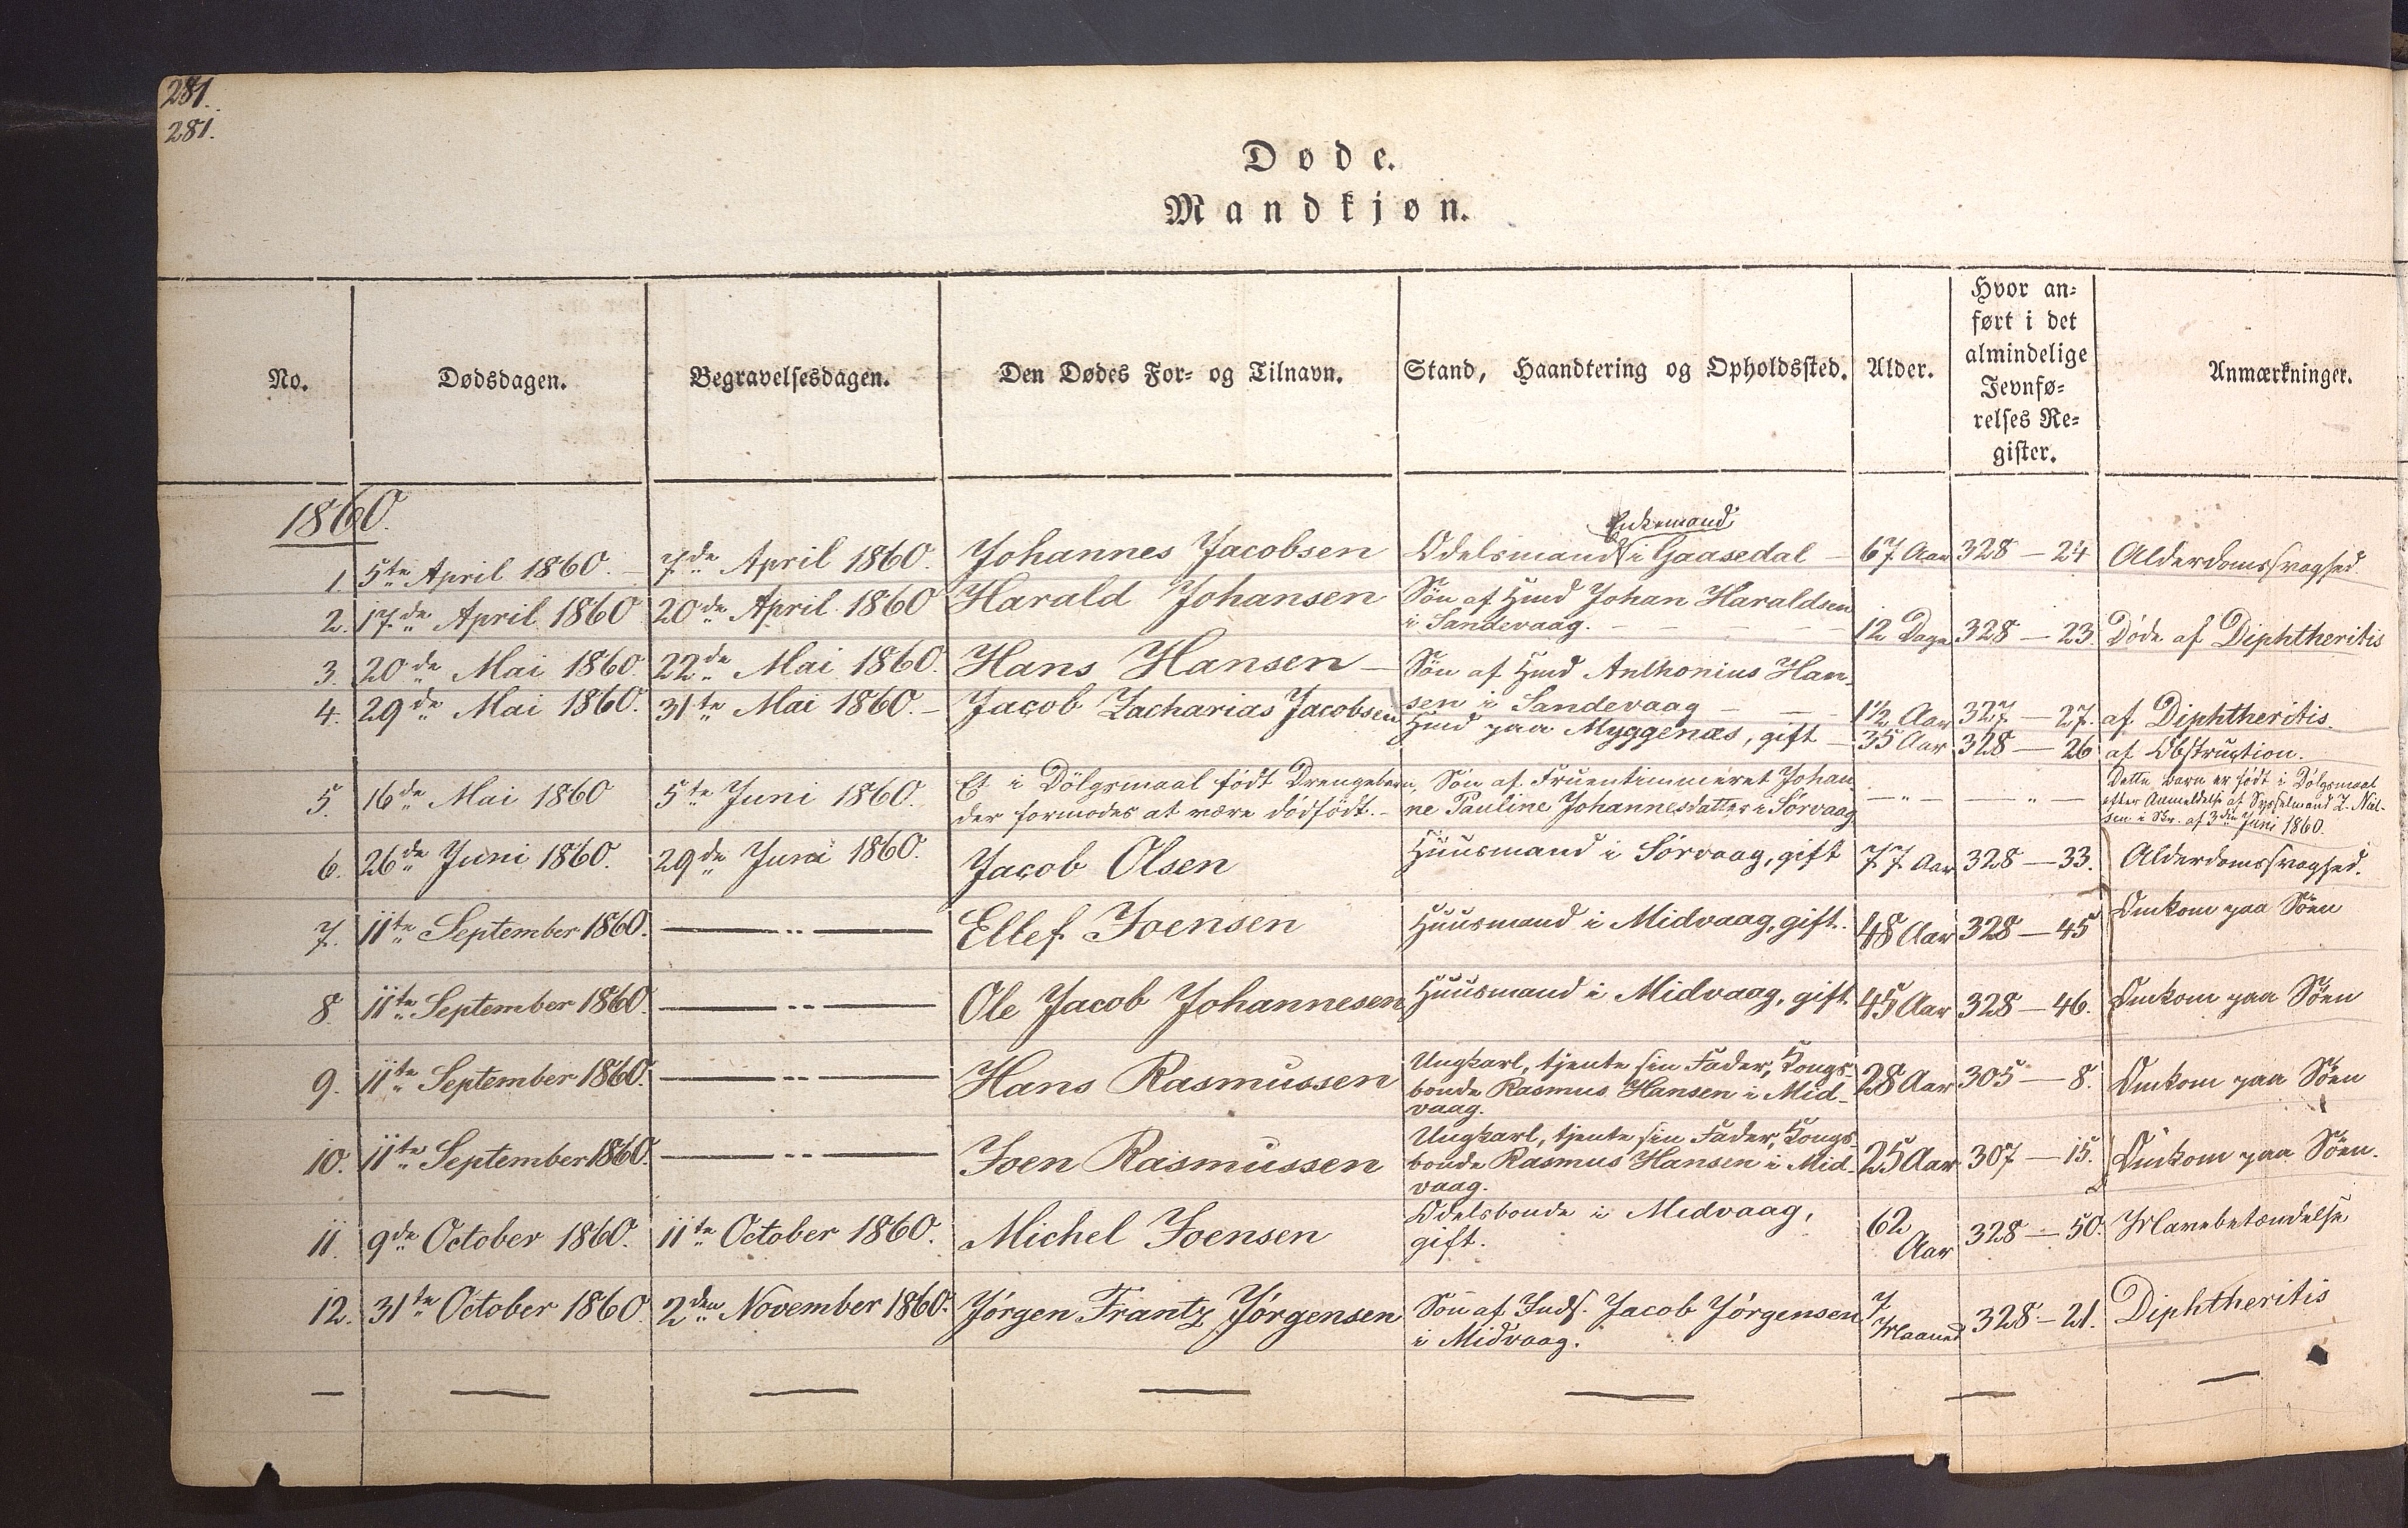 281.
281.
Døde.
Mandkjøn.
No.
Dødsdagen.
Begravelsesdagen.
Den Dødes For- og Tilnavn.
Stand, Haandtering og Opholdssted.
Alder.
Hvor an-
ført i det
almindelige
Jevnfø-
relses Re-
gister.
Anmærkninger.
1860.
Enkemand
1. 5te April 1860. 7de April 1860. Johannes Jacobsen Odelsmand i Gaasedal 67 Aar 328 — 24 Alderdomssvaghed.
2. 17de April 1860 20de April 1860 Harald Johansen Sön af Huusmd Johan Haraldsen
i Sandevaag. 12 Dage 328 — 23. Döde af Diphtheritis
3. 20de Mai 1860. 22de Mai 1860. Hans Hansen — Sön af Hmd Anthonius Han-
sen i Sandevaag 1½ Aar 327 — 27. af Diphtheritis.
4. 29de Mai 1860. 31te Mai 1860. Jacob Zacharias Jacobsen Hmd paa Myggenæs, gift — 35 Aar 328 — 26 af Obstruction.
5. 16de Mai 1860 5te Juni 1860. Et i Dölgsmaal födt Drengebarn, Sön af Fruentimmeret Johan-
der formodes at være dödfödt. — ne Pauline Johannesdatter i Sörvaag. — „ — — „ —
Dette Barn er födt i Dölgsmaal
efter Anmeldelse af Sysselmand Z. Niel-
sen i Skr. af 3die Juni 1860.
6. 26de Juni 1860. 29de Juni 1860. Jacob Olsen Huusmand i Sörvaag, gift 77 Aar 328 — 33. Alderdomssvaghed.
7. 11te September 1860. — „ — Ellef Joensen Huusmand i Midvaag, gift. 48 Aar 328 — 45 Omkom paa Söen
8. 11te September 1860. — „ — Ole Jacob Johannesen Huusmand i Midvaag, gift. 45 Aar 328 — 46. Omkom paa Söen
9. 11te September 1860. — „ — Hans Rasmussen Ungkarl, tjente sin Fader, Kongs-
bonde Rasmus Hansen i Mid-
vaag. 28 Aar 305 — 8. Omkom paa Söen
10. 11te September 1860. — „ — Joen Rasmussen Ungkarl, tjente sin Fader, Kongs-
bonde Rasmus Hansen i Mid-
vaag. 25 Aar 307 — 15. Omkom paa Söen.
11. 9de October 1860. 11te October 1860. Michel Joensen Odelsbonde i Midvaag,
gift. 62 Aar 328 — 50. Mavebetændelse
12. 31te October 1860 2den November 1860. Jörgen Frantz Jörgensen Sön af Inds. Jacob Jörgensen
i Midvaag. 7 Maaned 328 — 21. Diphtheritis